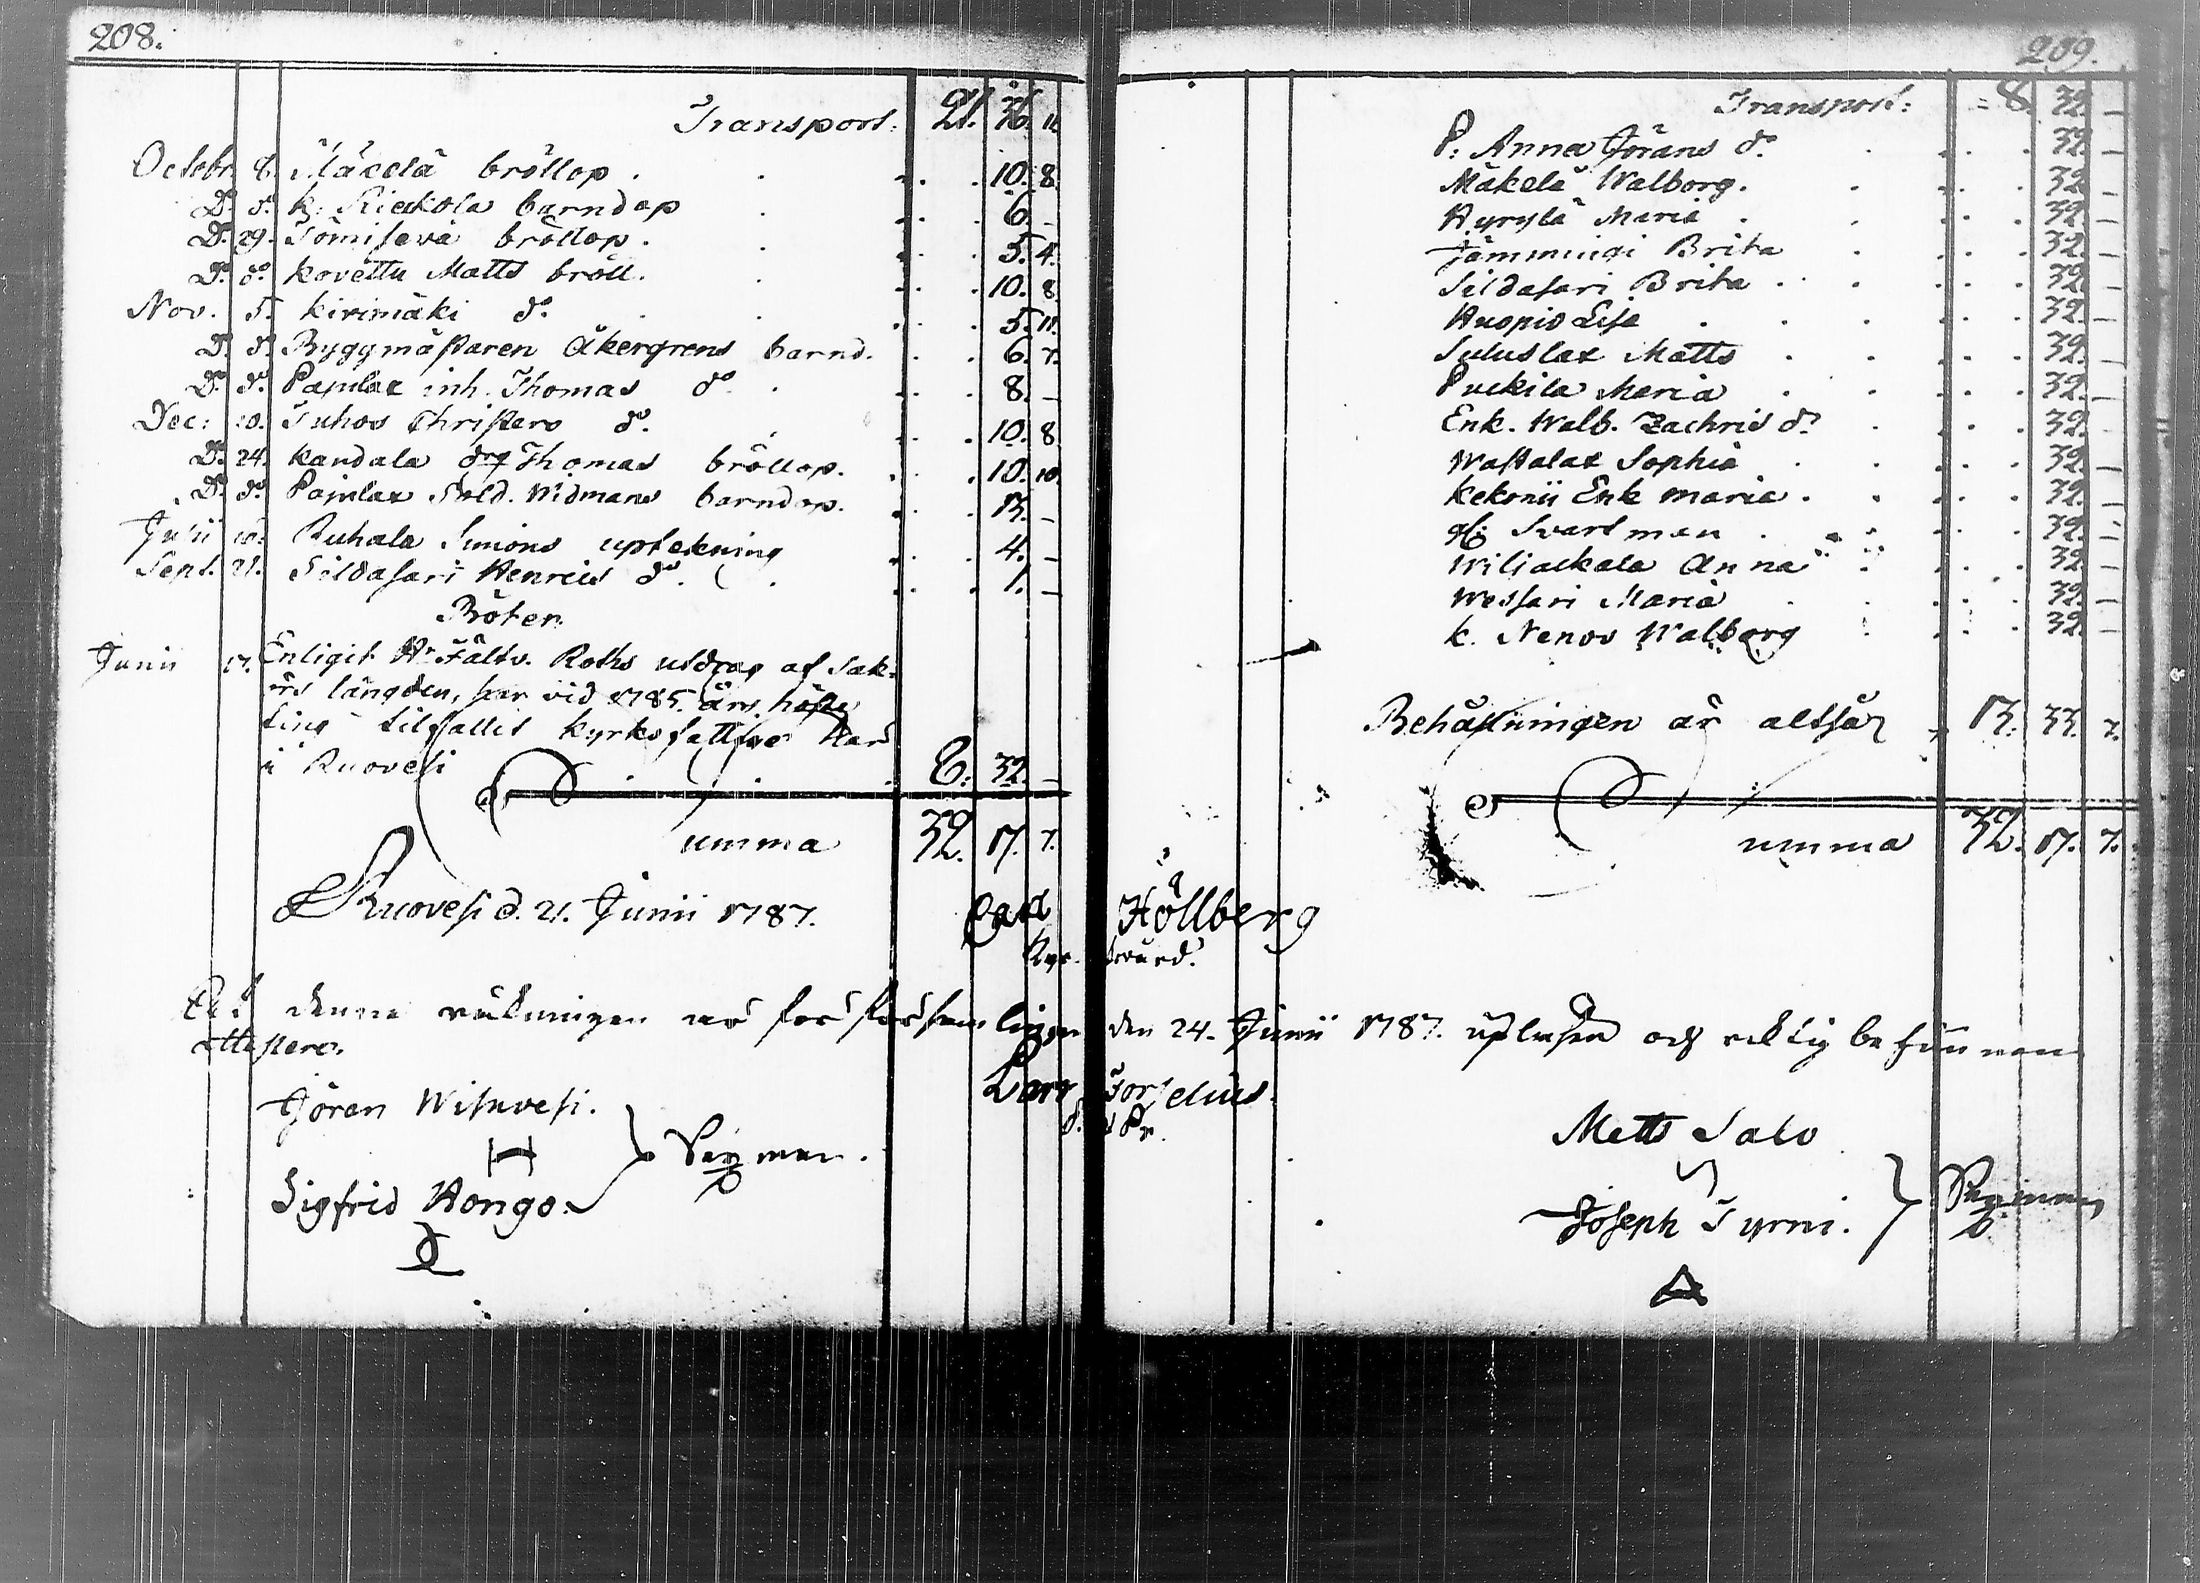 208.
Transport. 21. 36. 11
Octobr. 8. Mäkelä bröllop . 10. 8.
D. d:o k. Rieckola barndop 6. –
D. 29. Tomiseva bröllop. 5. 4.
D. d:o Kovettu Matts bröll. 10. 8.
Nov. 5. Kirimäki d:o 5. 11.
D. d:o Byggmästaren Åkergrens barnd. 6. 7.
D. d:o Pajulax inh. Thomas d:o 8. –
Dec: 10. Juhos Christers d:o 10. 8.
D. 24. Kaudala drg Thomas bröllop. 10. 10.
D. d:o Pajulax Sold. Widmans barndop. 13. –
Julii 16. Ruhala Simons uptekning 4. –
Sept. 21. Sildasari Henrics d:o 1. –
Böter.
Junii 17. Enligit Hr Fältv. Roths utdrag af Sak-
örs längden, har vid 1785. års höste
ting tilfallit kyrko fattige här
i Ruovesi 6. 32. –
Summa 32. 17. 7.
Ruovesi d. 21. Junii 1787.
209.
Transport: 8. 32. –
P: Anna Jörans d:r 32. –
Mäkelä Walborg. 32. –
Hyrylä Maria 32. –
Jämmingi Brita 32. –
Sildasari Brita 32. –
Huopio Lisa 32. –
Suluslax Matts 32. –
Puckila Maria 32. –
Enk. Walb. Zachris d:r 32. –
Wastalax Sophia 32. –
Kekonii Enk Maria 32. –
Svartman 32. –
Wiljackala Anna 32. –
Wessari Maria 32. –
k. Nenos Walborg 32. –
Behållningen är altså 13. 33. 7.
Summa 32. 17. 7.
Carl Höllberg
Kyr. wärd.
At denna räkningen är för församlingen den 24. Junii 1787. upläsen och riktig befunnen
attestera.
Lars Forselius
Jören Wisuvesi.
H
Sigfrid Hongo.
Sexmän.
Matts Salo
Joseph Tyrni.
Sexmän